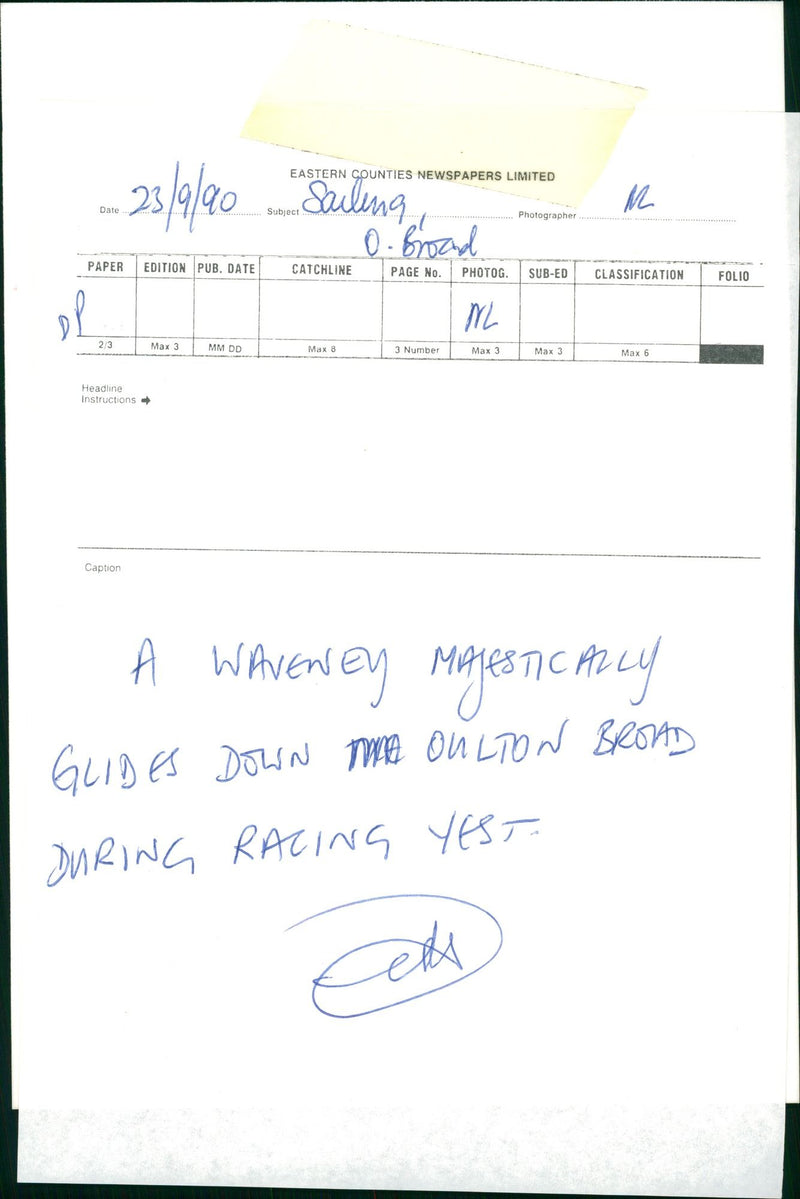 EASTERN COUNTIES NEWSPAPERS LIMITED
Date 23/9/90 Subject Sailing, Photographer NL
O. Broad
PAPER EDITION PUB. DATE CATCHLINE PAGE No. PHOTOG. SUB-ED CLASSIFICATION FOLIO
DP NL
2/3 Max 3 MM DD Max 8 3 Number Max 3 Max 3 Max 6
Headline
Instructions
Caption
A WAVENEY MAJESTICALLY
GLIDES DOWN OULTON BROAD
DURING RACING YEST.